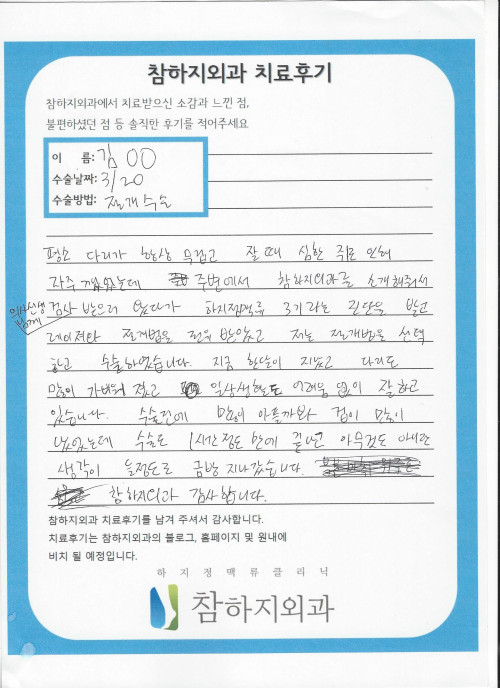 참하지외과 치료후기
참하지외과에서 치료받으신 소감과 느낀 점,
불편하셨던 점 등 솔직한 후기를 적어주세요
이 름: 김 OO
수술날짜: 3/20
수술방법: 절개수술
평소 다리가 항상 무겁고 잘 때 심한 쥐로 인해
자주 깼었는데 주변에서 참하지외과를 소개해줘서
의사선생님께
검사 받으러 왔다가 하지정맥류 3기라는 진단을 받고
레이져와 절개법을 받았고 저는 절개법을 선택
하고 수술하였습니다. 지금 한달이 지났고 다리도
많이 가벼워 졌고 일상생활도 어려움 없이 잘 하고
있습니다. 수술전에 많이 아플까봐 겁이 많이
났었는데 수술도 1시간 정도 만에 끝나고 아무것도 아니란
생각이 들정도로 금방 지나갔습니다.
참하지외과 감사합니다.
참하지외과 치료후기를 남겨 주셔서 감사합니다.
치료후기는 참하지외과의 블로그, 홈페이지 및 원내에
비치 될 예정입니다.
하지정맥류클리닉
참하지외과